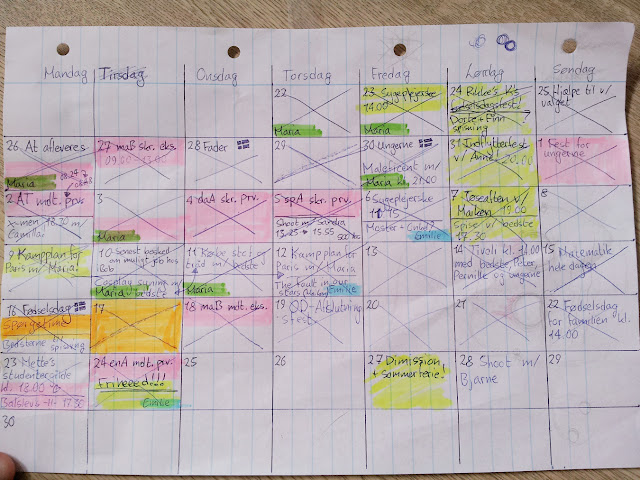 Mandag Tirsdag Onsdag Torsdag Fredag Lørdag Søndag
22
Maria
23 Sygeplejerske
14.00
Maria
24 Rikke's K's
fødselsdagsfest!
Dorte + Finn
spisning
25 Hjælpe til v/
valget
26. At afleveres
Maria
27 maB skr. eks.
09.00
28 Fader
29
30 Ungerne
Maleficent m/
Maria kl. 21.00
31
v/ Anne! 20.00
1 Fest for
ungerne
2 AT mdt. prv.
x-men 18.30 m/
Camilla!
3
Maria
4 daA skr. prv.
5 spA skr. prv.
Shoot m/ Sandra
12.25 → 15.55
6 Sygeplejerske
11.15
Moster +
Emilie
7 Tøseaften v/
19.00
Spise v/ bedste
17.30
8
9 Kampplan for
Paris m/ Maria!
10 Senest besked
om muligt job hos
Maria
11 Købe stof og
tråd m/ bedste
Maria
12 Kampplan for
Paris m/ Maria
The fault in our
stars
Emilie
13
14 Tivoli kl. 14.00
med bedste, Peter,
Pernille og ungerne
15 Matematik
hele dagen
16 Fødselsdag
Spørgetime
Bedsterne
17
18 maB mdt. eks.
19 OD-Afslutning
20
21
22 Fødselsdag
for familien kl.
14.00
23 Mette's
studentergilde
kl. 13.00
17.30
24 enA mdt. prv.
Friheeed!!!!
Emilie
25
26
27 Dimission
+ Sommerferie!
28 Shoot m/
Bjarne
29
30